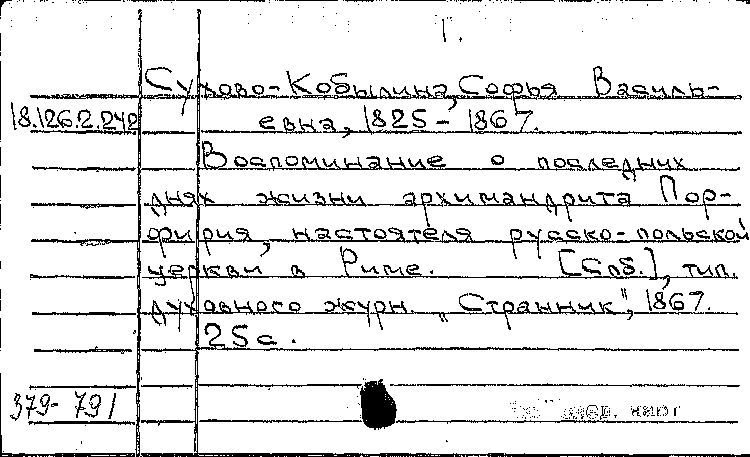 Г.
Сухово-Кобылина, Софья Василь-
18.126.2.242 евна, 1825 - 1867.
Воспоминание о последних
днях жизни архимандрита Пор-
фирия, настоятеля русско-польской
церкви в Риме. [Спб.], тип.
духовного журн. „Странник", 1867.
25с.
379-791 книг